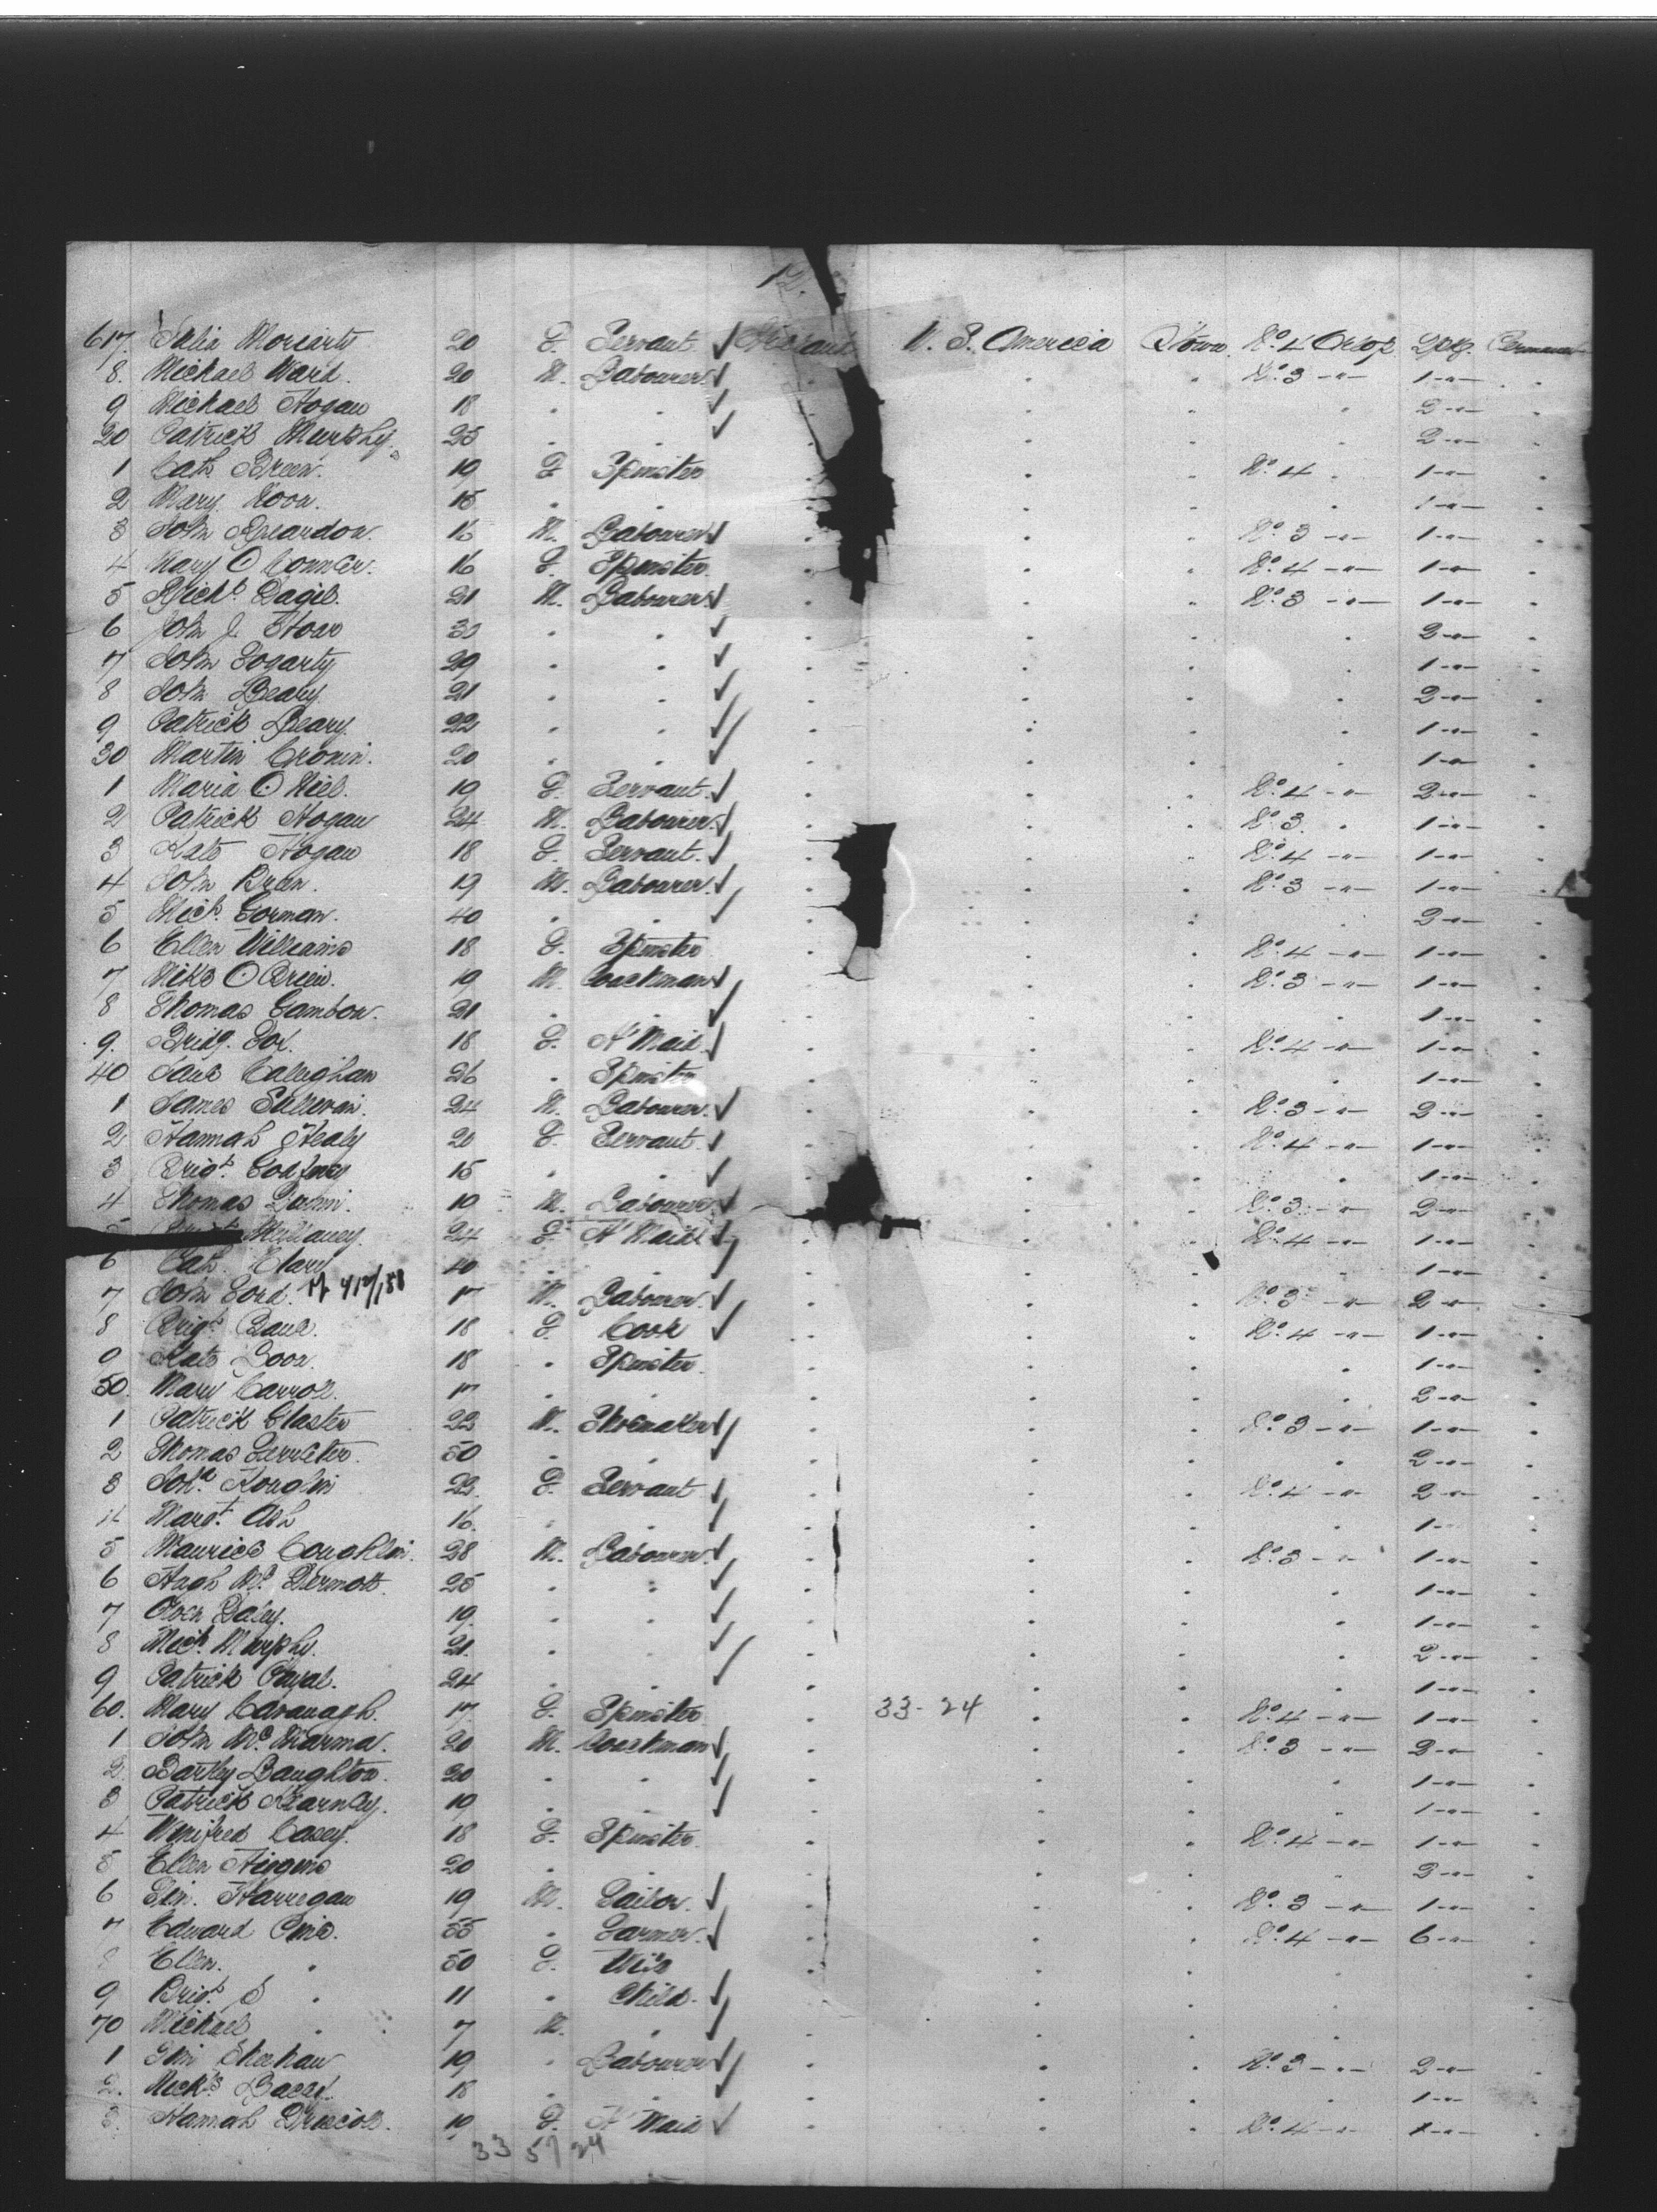 12.
617. Julia Moriarty 20 F. Servant U. S. America Qtown No. 4 Orlop 2 pkg. Permanent
8. Michael Ward. 20 M. Labourer No. 3 -"- 1 -"-
9 Michael Hogan 18 . . 2 -"-
20 Patrick Murphy. 25 . . 2 -"-
1 Cath Breen. 19 F Spinster No. 4 . 1 -"-
2 Mary 18 . . 1 -"-
3 John Reardon. 16 M. Labourer No. 3 -"- 1 -"-
4 Mary O Conner. 16 F. Spinster No. 4 -"- 1 -"-
5 Richd 21 M. Labourer No. 3 -"- 1 -"-
6 John J. Hoar 30 . . 2 -"-
7 John Fogarty 29 . . 1 -"-
8 John Leary 21 . . 2 -"-
9 Patrick Leary. 22 . . 1 -"-
30 Martin Cronin. 20 . . 1 -"-
1 Maria O Niel. 19 F. Servant. No. 4 -"- 2 -"-
2 Patrick Hogan 24 M. Labourer. No. 3 . 1 -"-
3 Kate Hogan 18 F. Servant. No. 4 -"- 1 -"-
4 John Breen. 19 M. Labourer. No. 3 -"- 1 -"-
5 Mich. Gorman. 40 . . 2 -"-
6 Ellen Williams 18 F. Spinster No. 4 -"- 1 -"-
7 Mike O Brien. 19 M. Coachman No. 3 -"- 1 -"-
8 Thomas Gambon. 21 . . 1 -"-
9. Bridg. Fox. 18 F. H Maid. No. 4 -"- 1 -"-
40 Jane Callighan 26 . Spinster 1 -"-
1 James Sullivan. 24 M. Labourer. No. 3 -"- 2 -"-
2 Hannah Healy 20 F. Servant No. 4 -"- 1 -"-
3 Brigt. Godfrey 15 . . 1 -"-
4 Thomas 19 M. Labourer No. 3 -"- 2 -"-
24 F H Maid No. 4 -"- 1 -"-
6 Cath. Clary 40 . . 1 -"-
7 John Ford. 17 M. Labourer. No. 3 -"- 2 -"-
8 Brigt. 18 F. Cook No. 4 -"- 1 -"-
9 Kate 18 . Spinster 1 -"-
50. Mary Carroll. 17 . . 2 -"-
1 Patrick Claster 22 M. Shoemaker No. 3 -"- 1 -"-
2 Thomas Ferriter. 50 . . 2 -"-
3 Joha. 22 F. Servant No. 4 -"- 2 -"-
4 Margt. Ash 16. . . 1 -"-
5 Maurice Coughlin. 28 M. Labourer. No. 3 -"- 1 -"-
6 Hugh Mc Dermott 25 . . 1 -"-
7 Owen Daley. 19. . . 1 -"-
8 Mich. Murphy. 21. . . 2 -"-
9 Patrick 24 . . 1 -"-
60. Mary Cavanagh. 17. F. Spinster 33-24 No. 4 -"- 1 -"-
1 John Mc 20 M. Coachman No. 3 -"- 2 -"-
2 Bartley Naughton. 20 . . 1 -"-
3 Patrick Kearney. 19 . . 1 -"-
4 Winifred Casey. 18 F. Spinster. No. 4 -"- 1 -"-
5 Ellen Higgins 20 . . 2 -"-
6 Harregan 19 M. Tailor. No. 3 -"- 1 -"-
7 Edward 55 . Farmer. No. 4 -"- 6 -"-
8 Ellen. . 50 F. Wife
9 Brigt. . 11 . Child.
70 Michael . 7 M. .
1 Sheehan 19 . Labourer No. 3 -"- 2 -"-
2. 18 . . 1 -"-
3. Hannah Driscoll. 19 F. H Maid No. 4 -"- 1 -"-
33 57 24